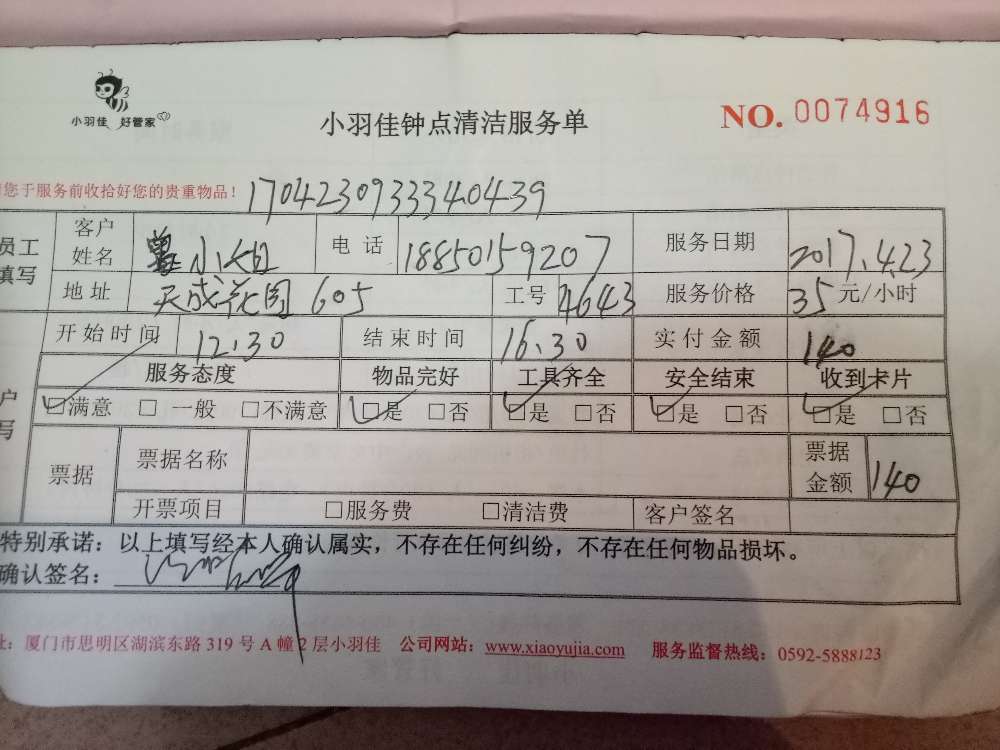 小羽佳 好管家
小羽佳钟点清洁服务单
NO. 0074916
您于服务前收拾好您的贵重物品! 1704230933340439
员工填写 客户姓名 曾小姐 电话 18850159207 服务日期 2017.4.23
地址 天成花园 605 工号 4643 服务价格 35 元/小时
开始时间 12.30 结束时间 16.30 实付金额 140
服务态度 物品完好 工具齐全 安全结束 收到卡片
户写 ☑满意 □一般 □不满意 ☑是 □否 ☑是 □否 ☑是 □否 ☑是 □否
票据 票据名称 票据金额 140
开票项目 □服务费 □清洁费 客户签名
特别承诺：以上填写经本人确认属实，不存在任何纠纷，不存在任何物品损坏。
确认签名：
址：厦门市思明区湖滨东路 319 号 A 幢 2 层小羽佳 公司网站：www.xiaoyujia.com 服务监督热线：0592-5888123